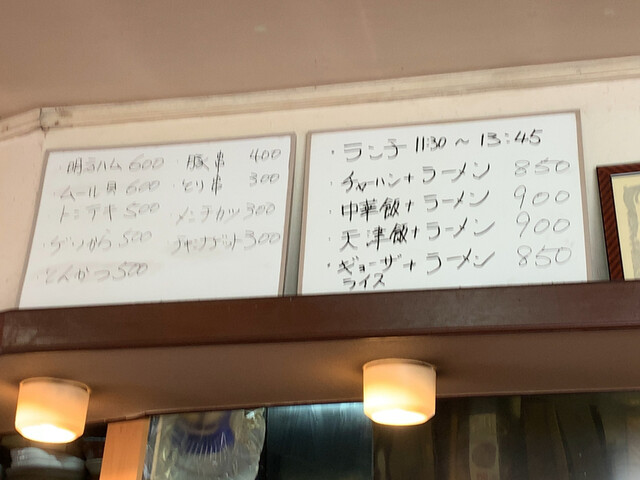 明るハム 600
ムール貝 600
トンテキ 500
ゲソから 500
とんかつ 500
豚串 400
とり串 300
メンチカツ 300
300
・ランチ 11:30 ～ 13:45
・チャーハン+ラーメン 850
・中華飯+ラーメン 900
・天津飯+ラーメン 900
・ギョーザ+ラーメン 850
ライス